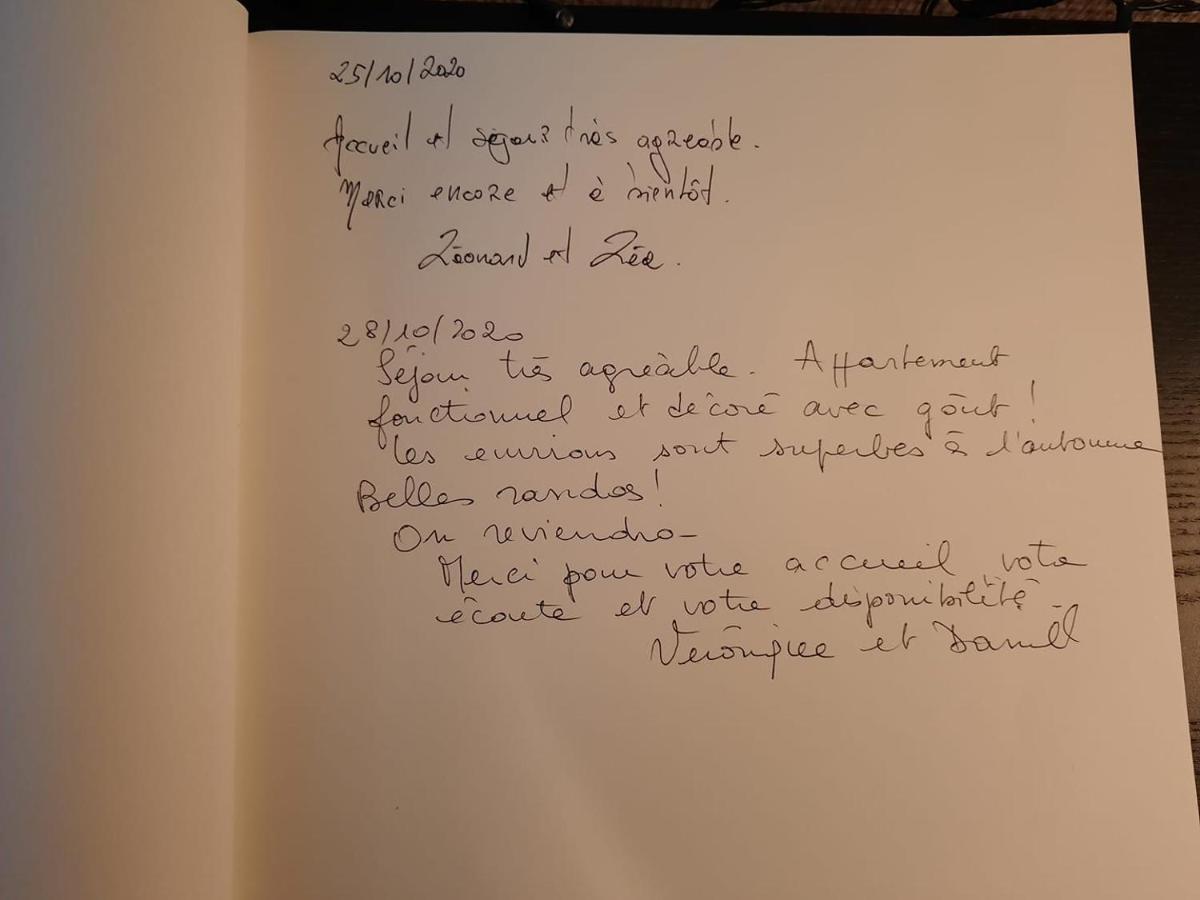 25/10/2020
Accueil et séjour très agréable.
Merci encore et à bientôt.
Léonard et Léa.
28/10/2020
Séjour très agréable. Appartement
fonctionnel et décoré avec goût !
les environs sont superbes à l'automne
Belles randos !
On reviendra -
Merci pour votre accueil votre
écoute et votre disponibilité.
Véronique et Daniel